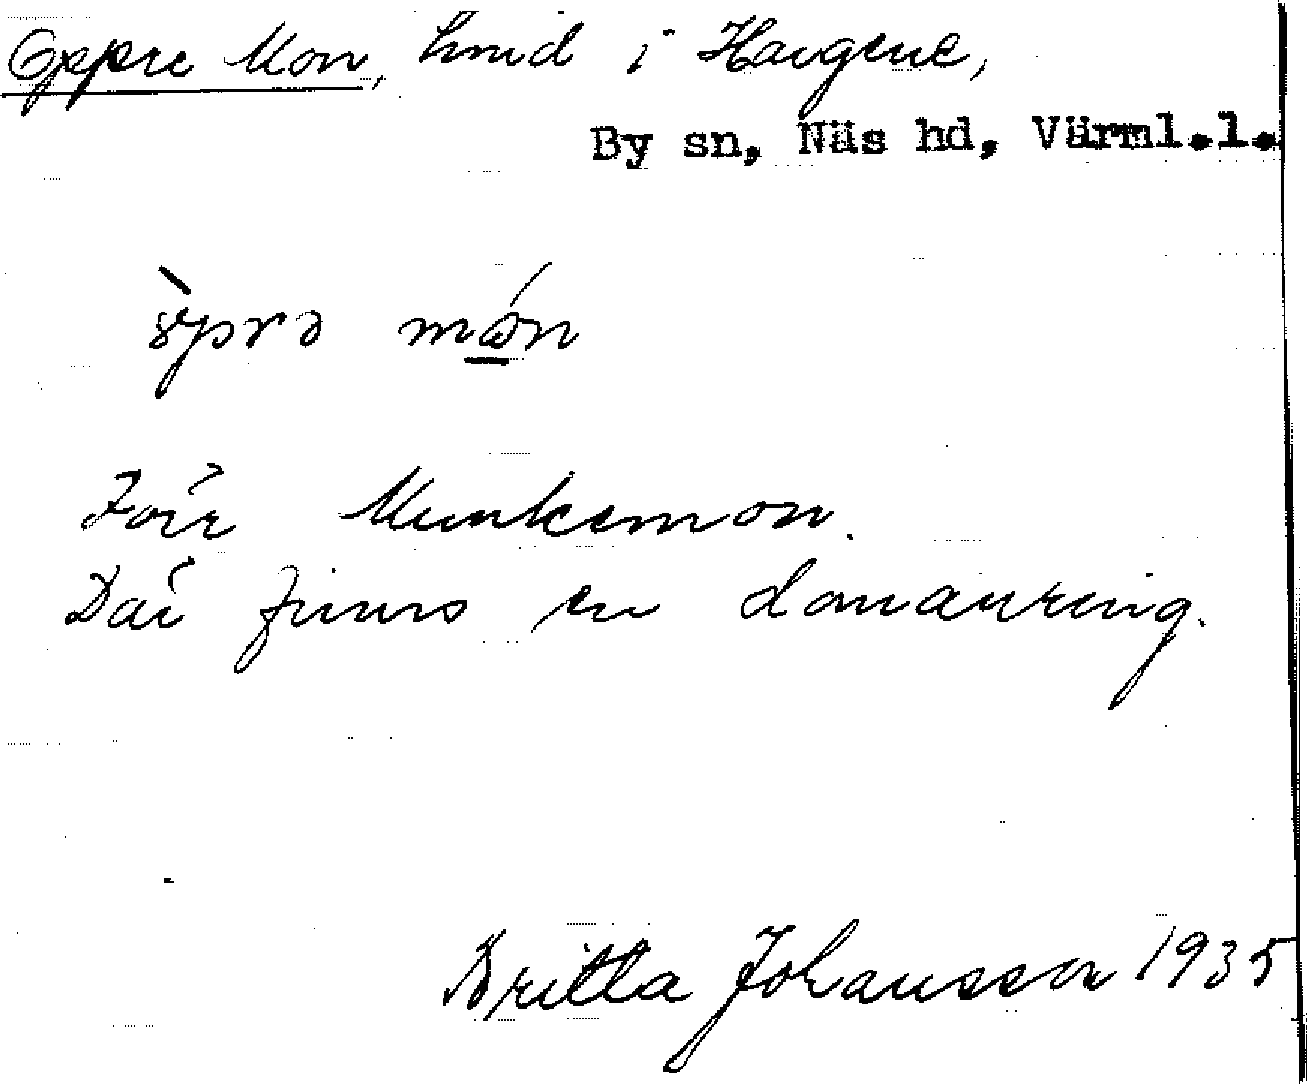 Öppre Mon, hmd i Haugene,
By sn, Näs hd, Värml.l.
Förr Munkemon.
Där finns en domarring.
Britta Johansson 1935